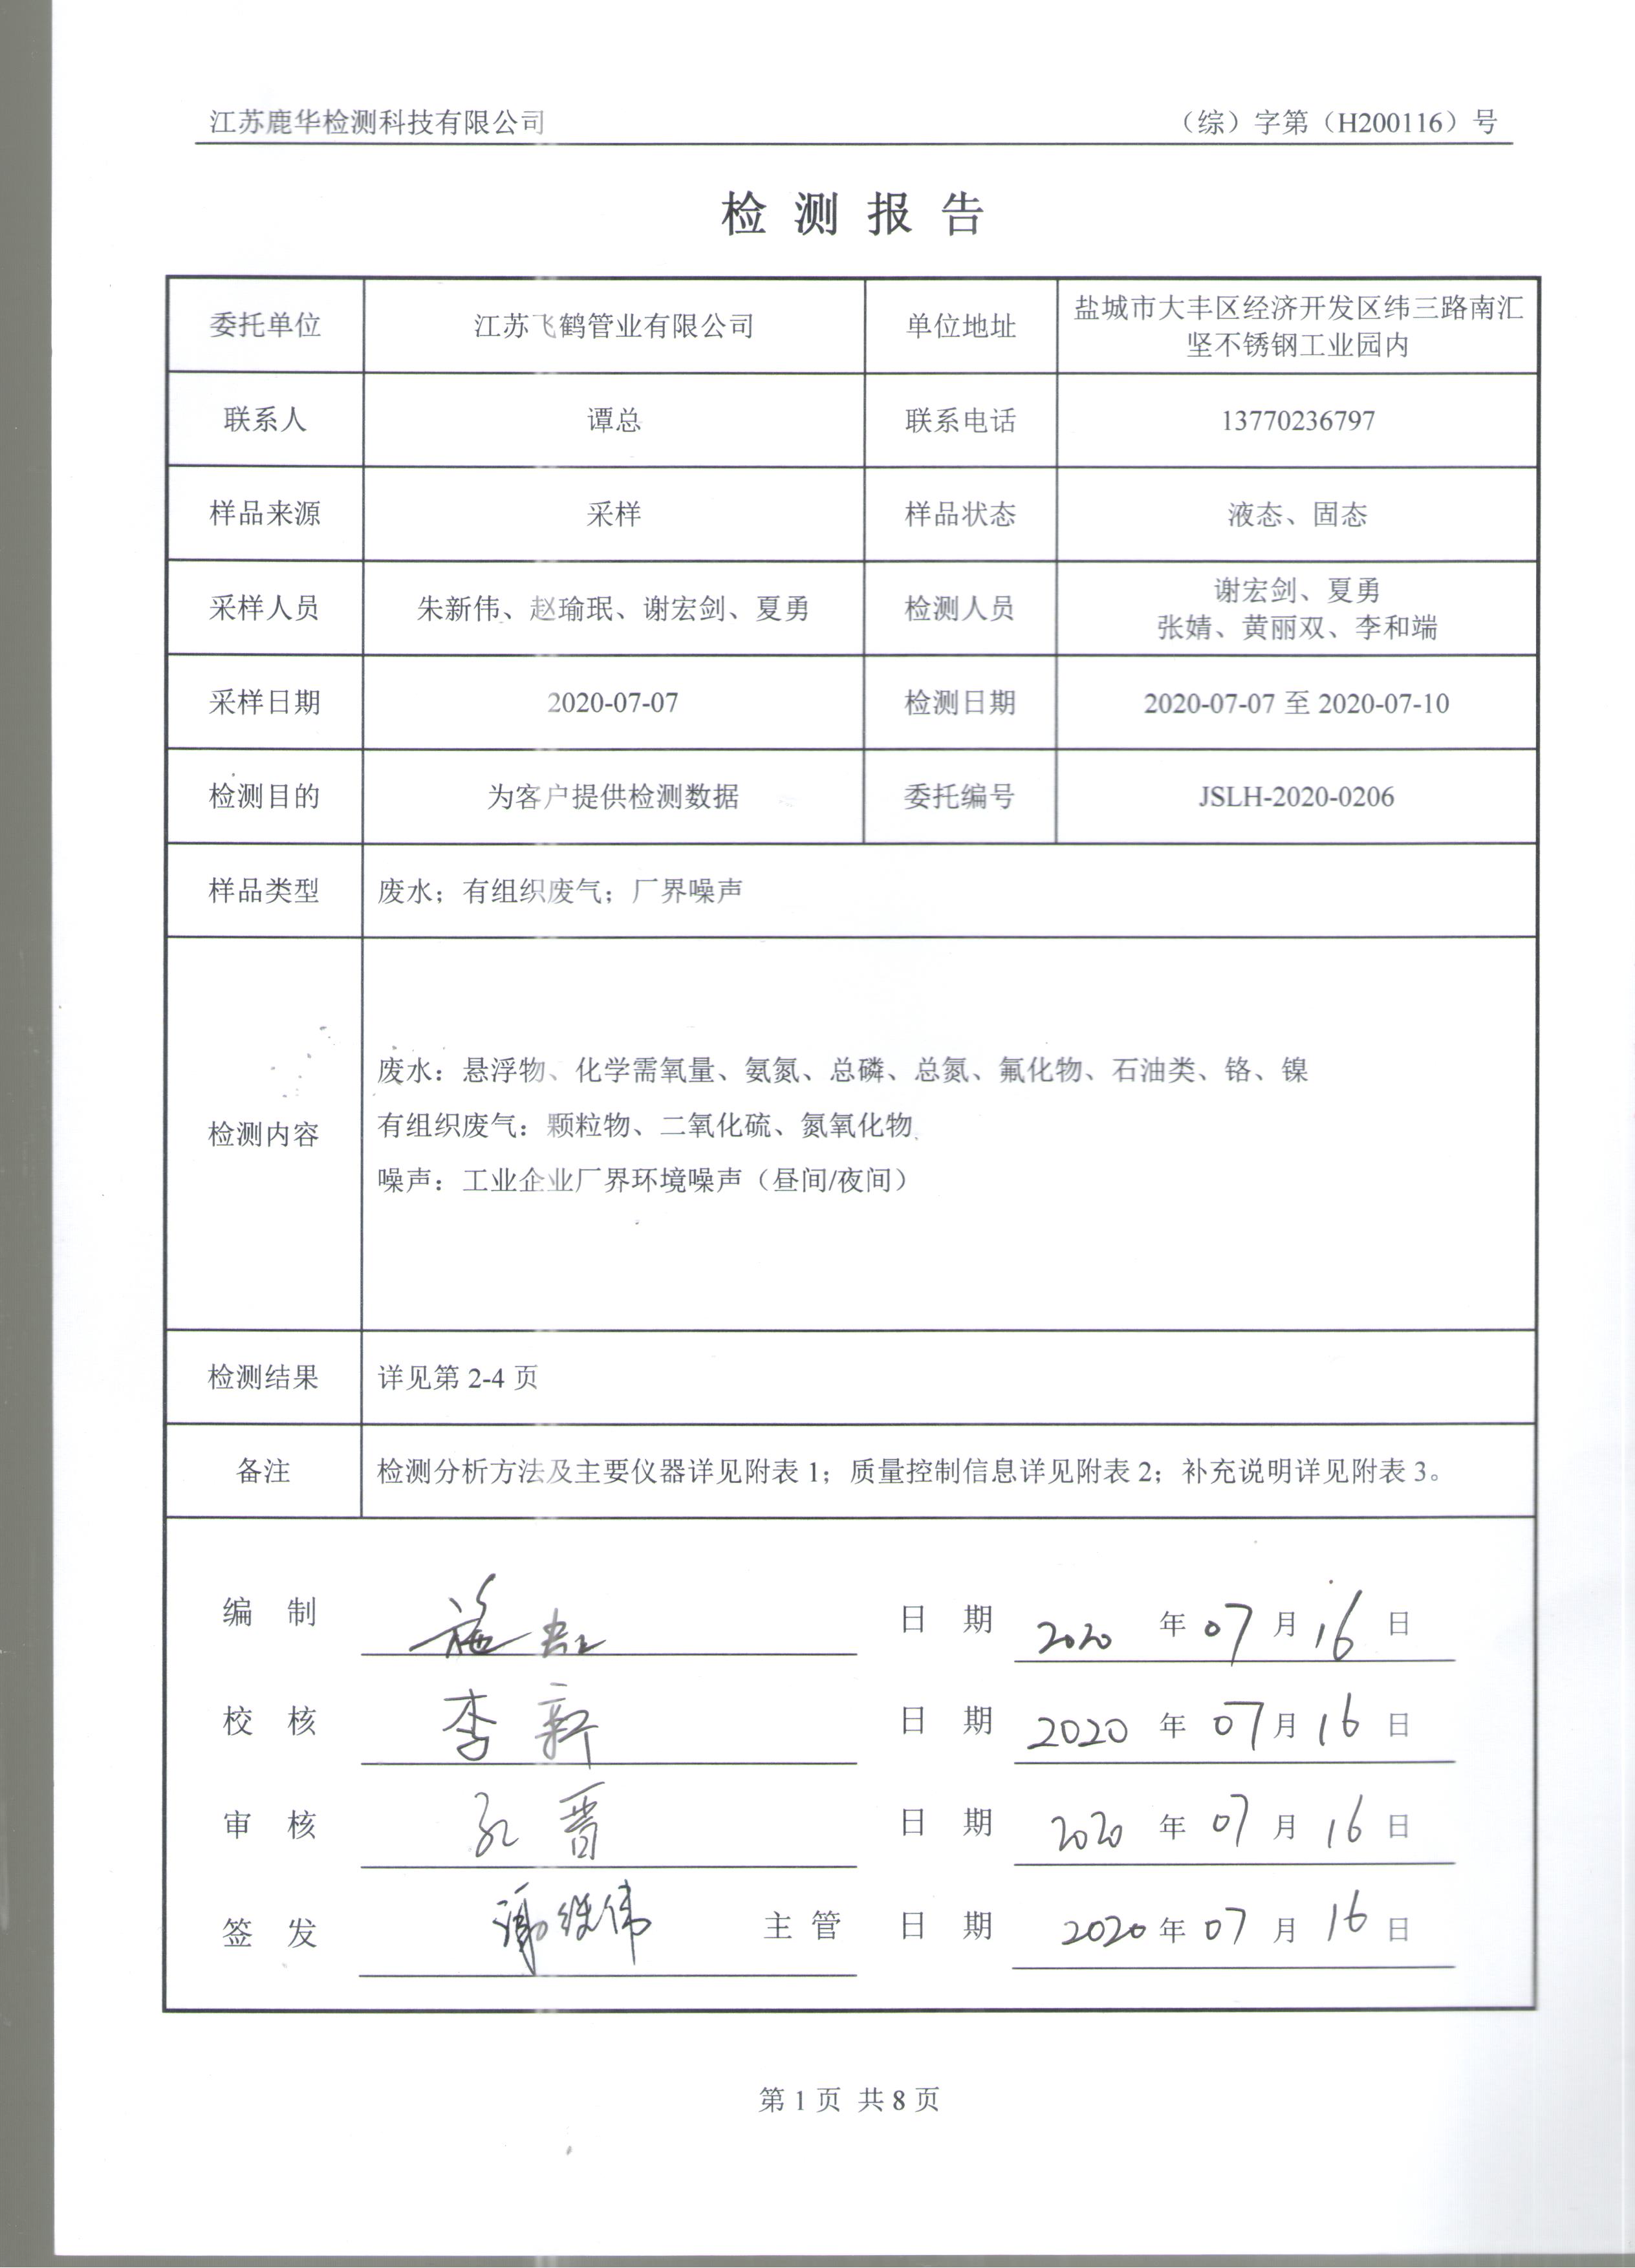 江苏鹿华检测科技有限公司 （综）字第（H200116）号
检测报告
委托单位 江苏飞鹤管业有限公司 单位地址 盐城市大丰区经济开发区纬三路南汇
坚不锈钢工业园内
联系人 谭总 联系电话 13770236797
样品来源 采样 样品状态 液态、固态
采样人员 朱新伟、赵瑜珉、谢宏剑、夏勇 检测人员 谢宏剑、夏勇
张婧、黄丽双、李和端
采样日期 2020-07-07 检测日期 2020-07-07 至 2020-07-10
检测目的 为客户提供检测数据 委托编号 JSLH-2020-0206
样品类型 废水；有组织废气；厂界噪声
检测内容
废水：悬浮物、化学需氧量、氨氮、总磷、总氮、氟化物、石油类、铬、镍
有组织废气：颗粒物、二氧化硫、氮氧化物
噪声：工业企业厂界环境噪声（昼间/夜间）
检测结果 详见第 2-4 页
备注 检测分析方法及主要仪器详见附表 1；质量控制信息详见附表 2；补充说明详见附表 3。
编制 日期 2020 年 07 月 16 日
校核 李新 日期 2020 年 07 月 16 日
审核 孔晋 日期 2020 年 07 月 16 日
签发 主管 日期 2020 年 07 月 16 日
第 1 页 共 8 页